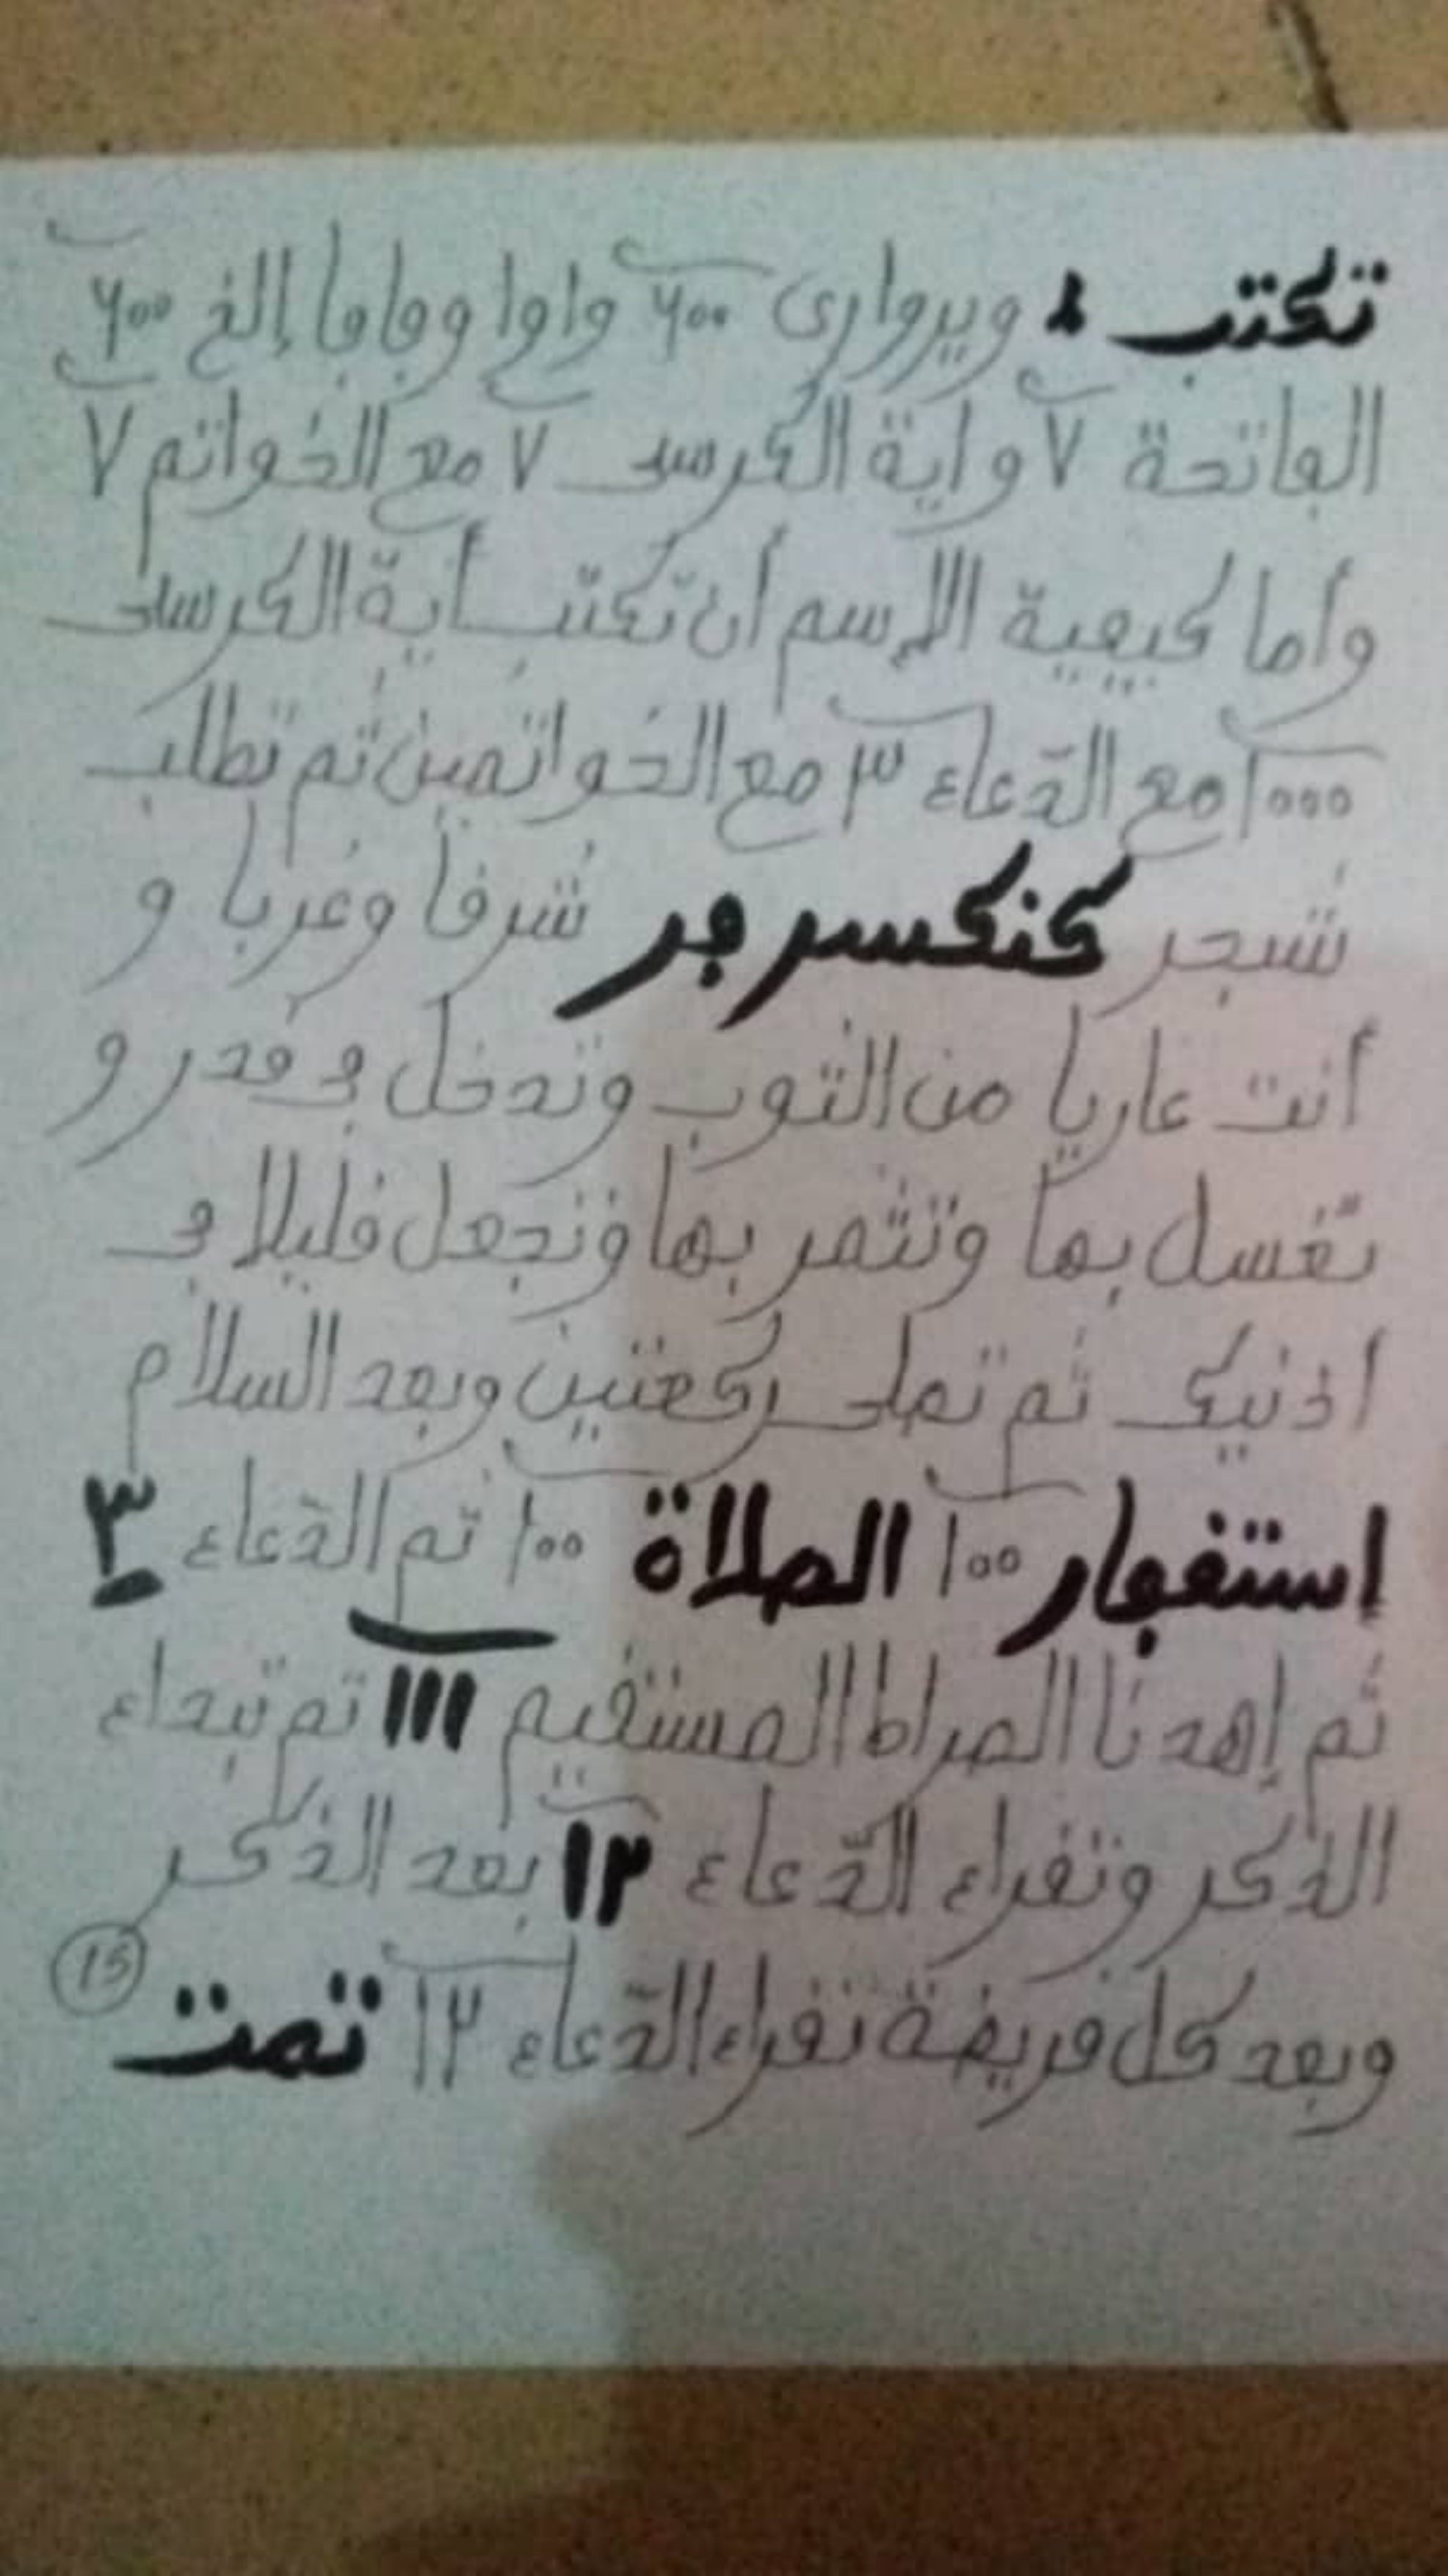 تكتب ويروارى ٦٠٠ واوا وفافا إلخ ٦٠٠
الفاتحة ٧ واية الكرسى ٧ مع الخواتم ٧
وأما كيفية الإسم أن تكتب أية الكرسى
١٠٠٠ مع الدّعاء ٣ مع الخواتمين ثم تطلب
شجر كنكسر جر شرفا وغربا و
أنت عاريا من الثوب وتدخل فى قدر و
تغسل بها وتشمر بها وتجعل قليلا فى
اذنيك ثم تصلى ركعتين وبعد السلام
إستغفار ١٠٠ الصلاة ١٠٠ ثم الدّعاء ٣
ثم إهدنا الصراط المستقيم ١١١ ثم تبداء
الذكر وتقراء الدّعاء ١٢ بعد الذكر
وبعد كل فريضة تقراء الدّعاء ١٢ تمت
15